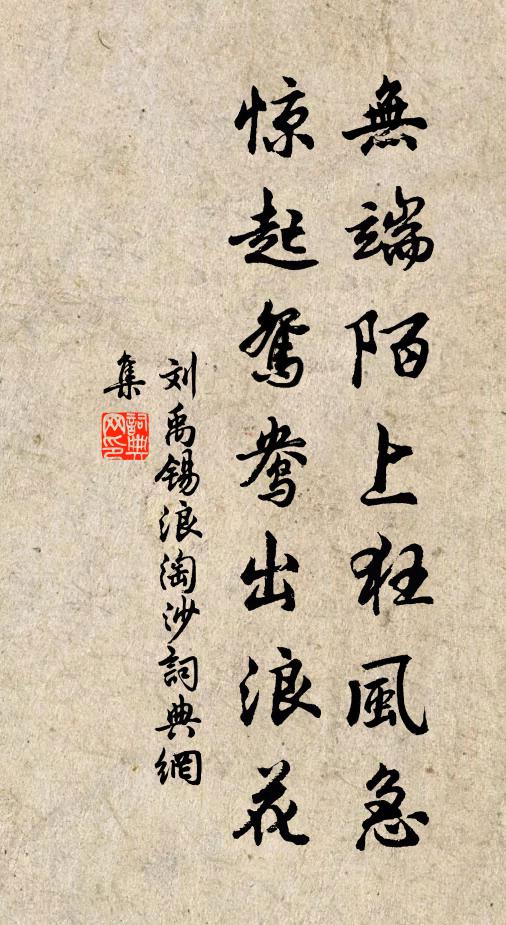 無端陌上狂風急
惊起鴛鴦出浪花
刘禹锡浪淘沙詞典網
集
詞典
网印